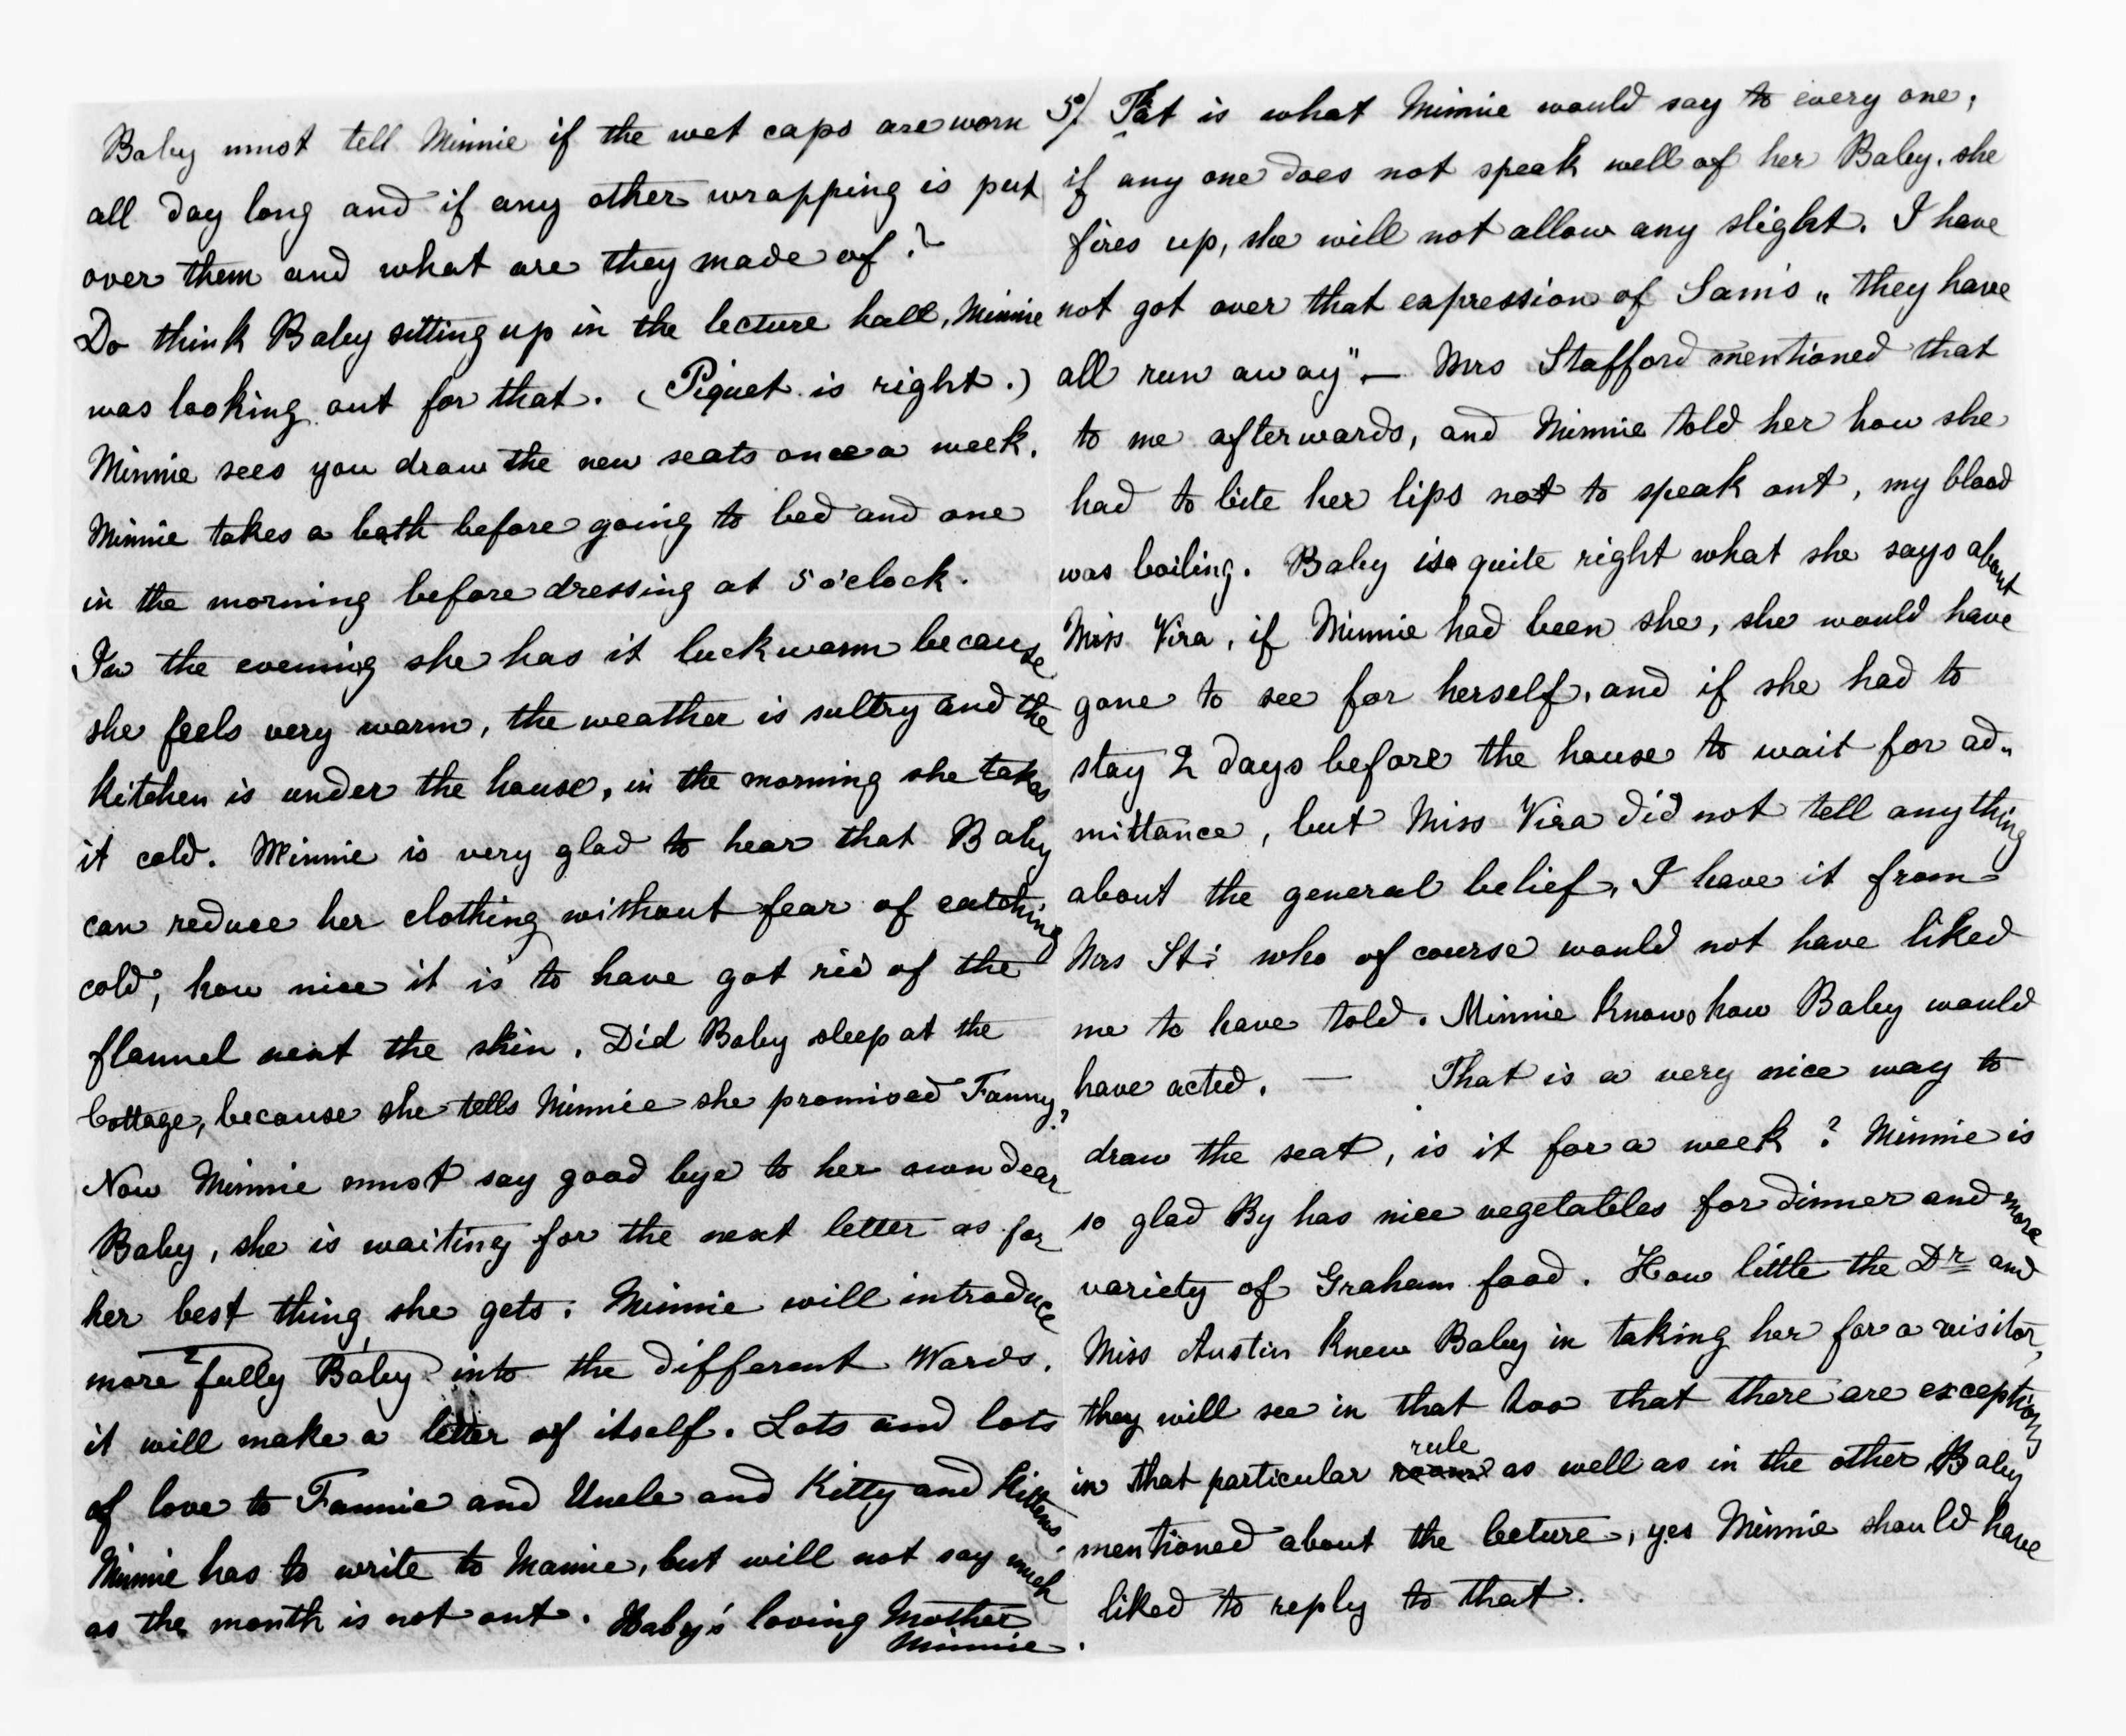 Baby must tell Minnie if the wet caps are worn
all day long and if any other wrapping is put
over them and what are they made of?
Do think Baby sitting up in the lecture hall, Minnie
was looking out for that. (Piquet is right.)
Minnie sees you draw the new seats once a week.
Minnie takes a bath before going to bed and one
in the morning before dressing at 5 o'clock.
In the evening she has it luckwarm because
she feels very warm, the weather is sultry and the
kitchen is under the house, in the morning she takes
it cold. Minnie is very glad to hear that Baby
can reduce her clothing without fear of catching
cold, how nice it is to have got rid of the
flannel next the skin. Did Baby sleep at the
Cottage, because she tells Minnie she promised Fanny?
Now Minnie must say good bye to her own dear
Baby, she is waiting for the next letter as for
her best thing she gets. Minnie will introduce
more fully Baby into the different Wards.
it will make a letter of itself. Lots and lots
of love to Fannie and Uncle and Kitty and Kittens.
Minnie has to write to Mamie, but will not say much
as the month is not out. Baby's loving Mother
Minnie.
5) That is what Minnie would say to every one,
if any one does not speak well of her Baby, she
fires up, she will not allow any slight. I have
not got over that expression of Sam's „they have
all run away" — Mrs Stafford mentioned that
to me afterwards, and Minnie told her how she
had to bite her lips not to speak out, my blood
was boiling. Baby is quite right what she says about
Miss Vira, if Minnie had been she, she would have
gone to see for herself, and if she had to
stay 2 days before the house to wait for ad„
mittance, but Miss Vira did not tell anything
about the general belief, I have it from
Mrs St: who of course would not have liked
me to have told. Minnie knows how Baby would
have acted. — That is a very nice way to
draw the seat, is it for a week? Minnie is
so glad By has nice vegetables for dinner and more
variety of Graham food. How little the Dr and
Miss Austin knew Baby in taking her for a visitor,
they will see in that too that there are exceptions
in that particular rule as well as in the other Baby
mentioned about the lecture, yes Minnie should have
liked to reply to that.